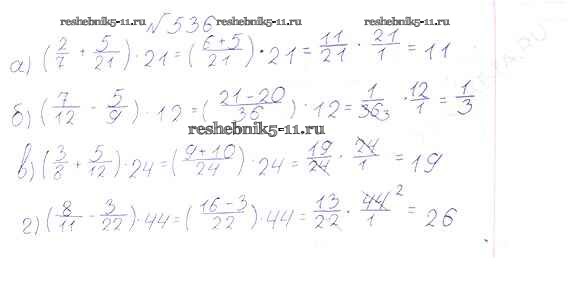 reshebnik5-11.ru №536 reshebnik5-11.ru
а) (2/7 + 5/21) · 21 = ((6+5)/21) · 21 = 11/21 · 21/1 = 11
б) (7/12 - 5/9) · 12 = ((21-20)/36) · 12 = 1/36 3 · 12/1 = 1/3
reshebnik5-11.ru
в) (3/8 + 5/12) · 24 = ((9+10)/24) · 24 = 19/24 · 24/1 = 19
г) (8/11 - 3/22) · 44 = ((16-3)/22) · 44 = 13/22 · 44/1 2 = 26